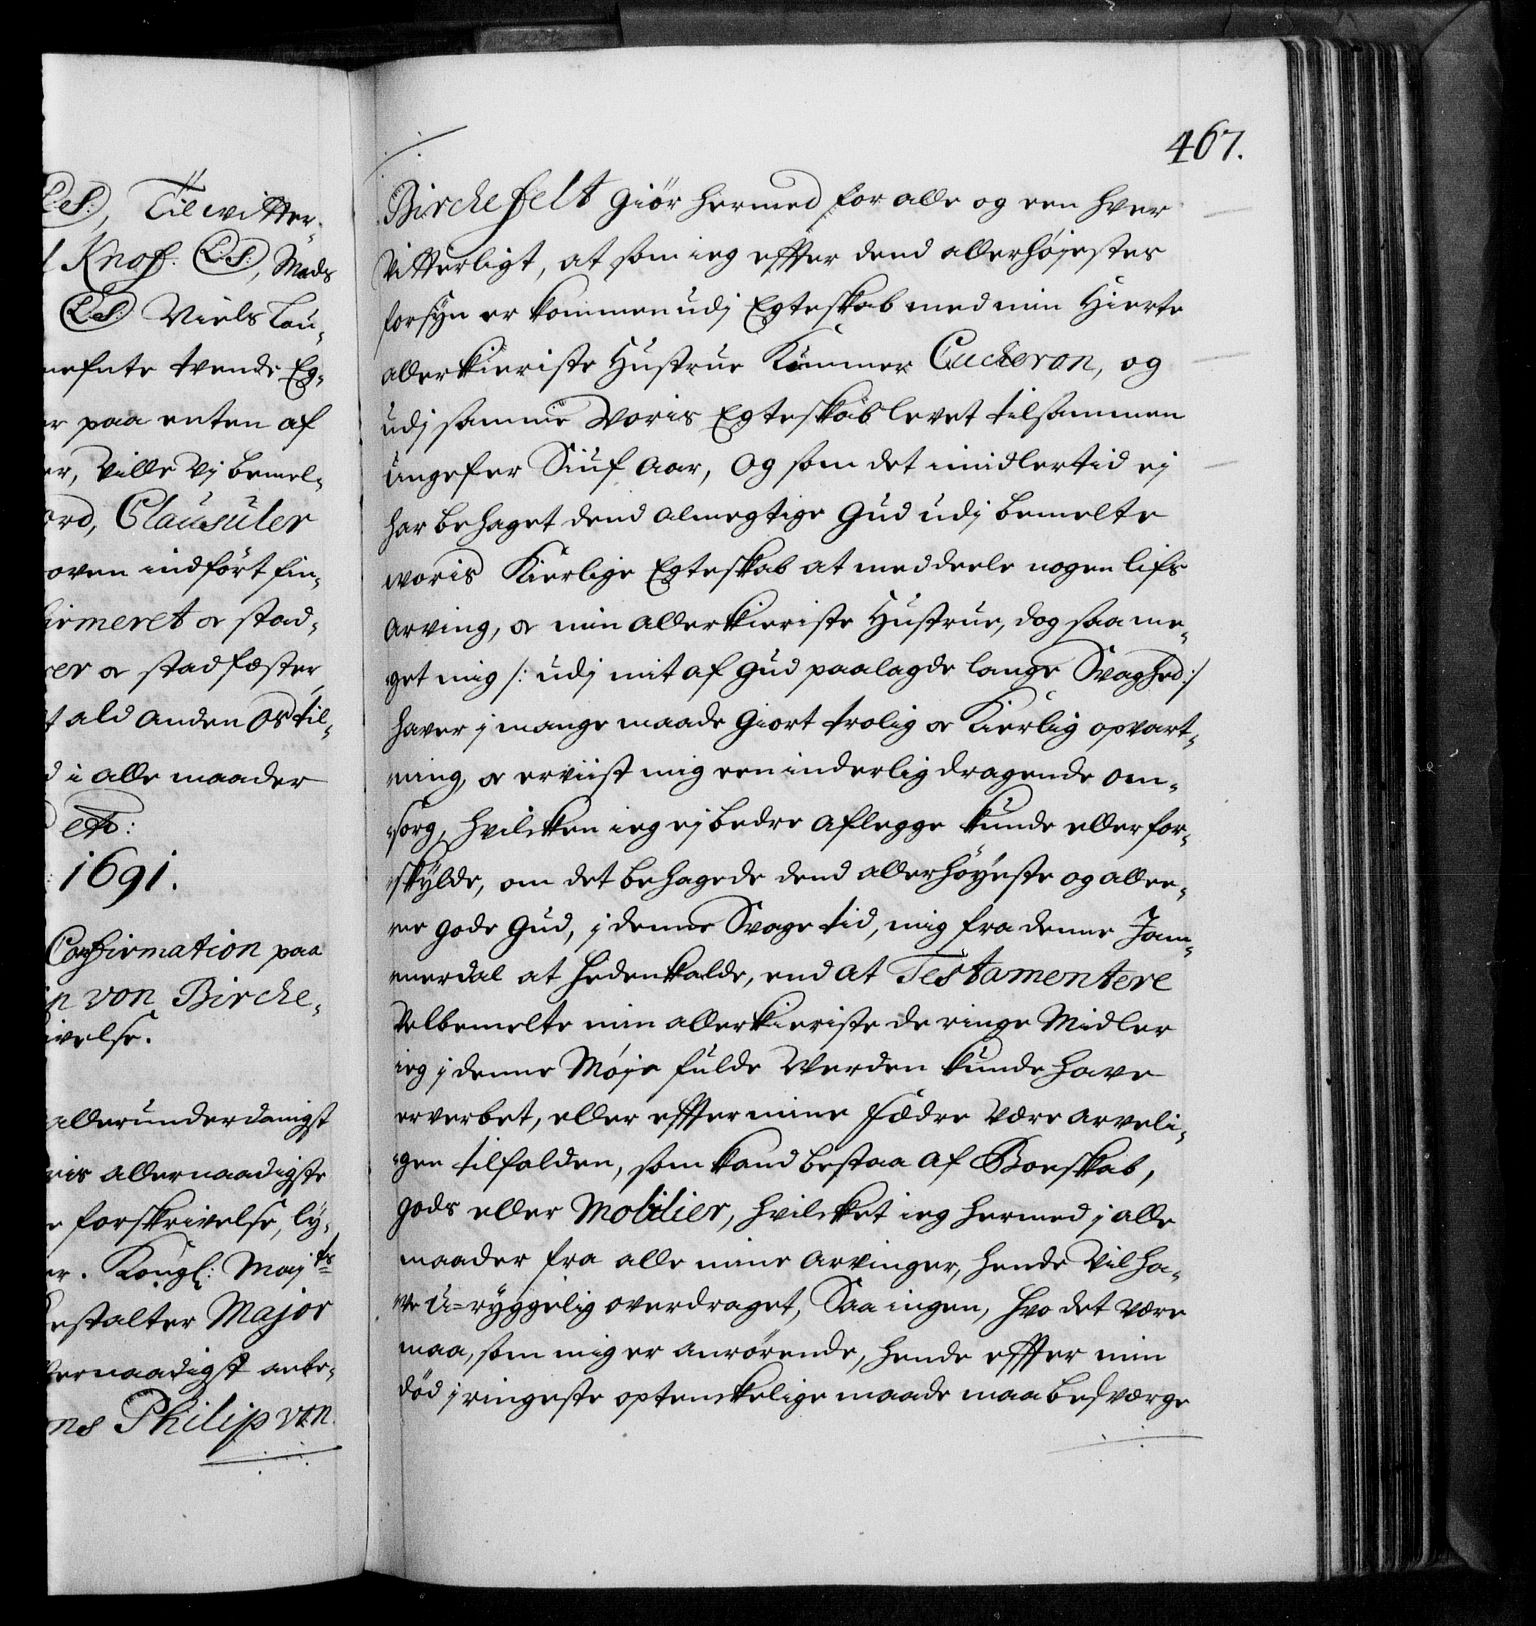 L.S. Til witter-
Knof. L.S., Mads
L.S. Niels Lau-
nefnte tvende Eg-
er paa enten af
er, ville vj bemel-
ord, Clausuler
oven indført fin-
firmeret & stad-
er & stadfæster
ald anden os til-
d i alle maader
etc:
1691.
Confirmation paa
von Birche-
ivelse.
allerunderdanigst
ris allernaadigste
forskrivelse, ly-
er. Kongl: Maj.ts
bestalter Major
lernaadigst anbe-
ns Philip von
467.
Birchefelt giör hermed for alle og een hver
vitterligt, at som ieg effter dend allerhøjestes
forsyn er kommen udj Egteskab med min Hierte
allerkieriste Hustrue Kummer Cucheron, og
udj samme Woris Egteskab levet tilsammen
ungefer Siuf aar, og som det imidlertid ej
har behaget dend almegtige Gud udj bemelte
woris Kierlige Egteskab at meddeele nogen lifs
arving, & min allerkieriste Hustrue, dog saa me-
get mig /: udj mit af Gud paalagde lange Svaghed :/
haver j mange maade giort trolig & Kierlig opvart-
ning, & erviist mig een inderlig dragende om-
sorg, hvilcken ieg ej bedre aflegge kunde eller for-
skylde, om det behagede dend allerhöyeste og alle-
ne gode Gud, j denne Svage tid, mig fra denne Jam-
merdal at hedenkalde, end at Testamentere
Velbemelte min allerkieriste de ringe Midler
ieg j denne Møje fulde Werden kunde have
erverbet, eller effter mine Fædre være arveli-
gen tilfalden, som kand bestaa af Boeskab,
gods eller Mobilier, hvilcket ieg hermed j alle
maader fra alle mine Arvinger, hende vil ha-
ve u-ryggelig overdraget, Saa ingen, hvo det være
maa, som mig er anrørende, hende effter min
död j ringeste optenckelige maade maa besværge